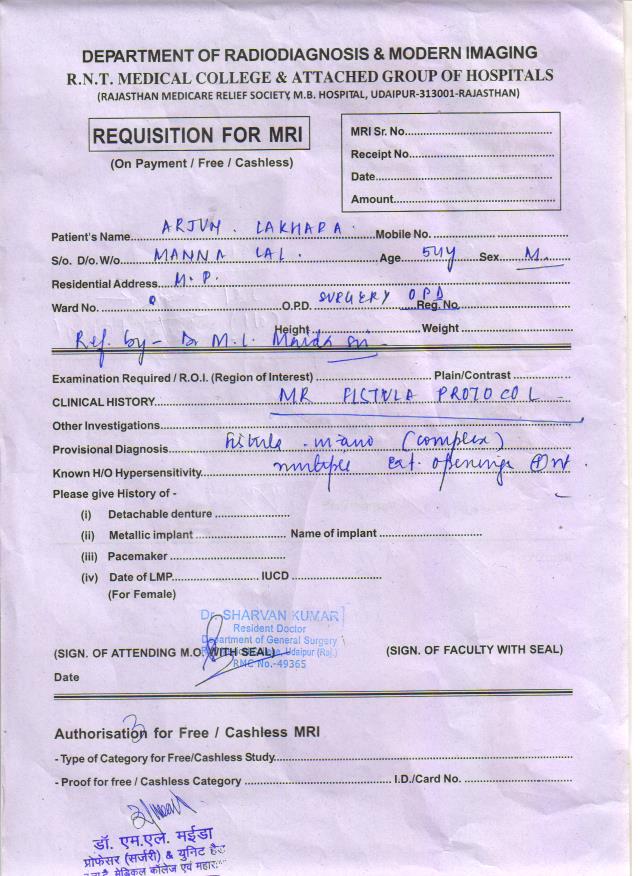 DEPARTMENT OF RADIODIAGNOSIS & MODERN IMAGING
R.N.T. MEDICAL COLLEGE & ATTACHED GROUP OF HOSPITALS
(RAJASTHAN MEDICARE RELIEF SOCIETY, M.B. HOSPITAL, UDAIPUR-313001-RAJASTHAN)
REQUISITION FOR MRI
(On Payment / Free / Cashless)
MRI Sr. No.
Receipt No.
Date
Amount
Patient's Name ARJUN LAKHARA Mobile No.
S/o. D/o. W/o MANNA LAL Age 54y Sex M.
Residential Address M.P.
Ward No. O.P.D. SURGERY OPD Reg. No.
Height Weight
Ref. by - Dr M.L. Maida Sir
Examination Required / R.O.I. (Region of Interest) Plain/Contrast
CLINICAL HISTORY MR FISTULA PROTOCOL
Other Investigations
Provisional Diagnosis fistula in ano (complex)
Known H/O Hypersensitivity multiple Ext. openings
Please give History of -
(i) Detachable denture
(ii) Metallic implant Name of implant
(iii) Pacemaker
(iv) Date of LMP IUCD
(For Female)
Dr. SHARVAN KUMAR
Resident Doctor
Department of General Surgery
Udaipur (Raj.)
RMC No.-49365
(SIGN. OF ATTENDING M.O. WITH SEAL) (SIGN. OF FACULTY WITH SEAL)
Date
Authorisation for Free / Cashless MRI
- Type of Category for Free/Cashless Study
- Proof for free / Cashless Category I.D./Card No.
डॉ. एम.एल. मईडा
प्रोफेसर (सर्जरी) & युनिट हैड
मेडिकल कॉलेज एवं